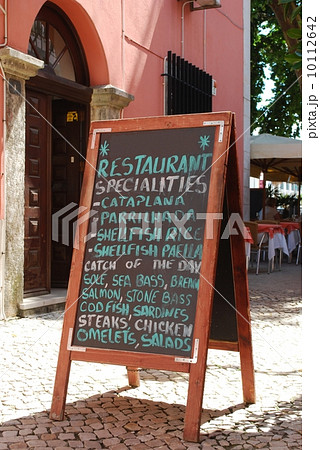 * RESTAURANT *
SPECIALITIES
- CATAPLANA
- PARRILHADA
- SHELLFISH RICE
- SHELLFISH PAELLA
CATCH OF THE DAY
SOLE, SEA BASS, BREAM
SALMON, STONE BASS
COD FISH, SARDINES
STEAKS, CHICKEN
OMELETS, SALADS
PIXTA
pixta.jp - 10112642